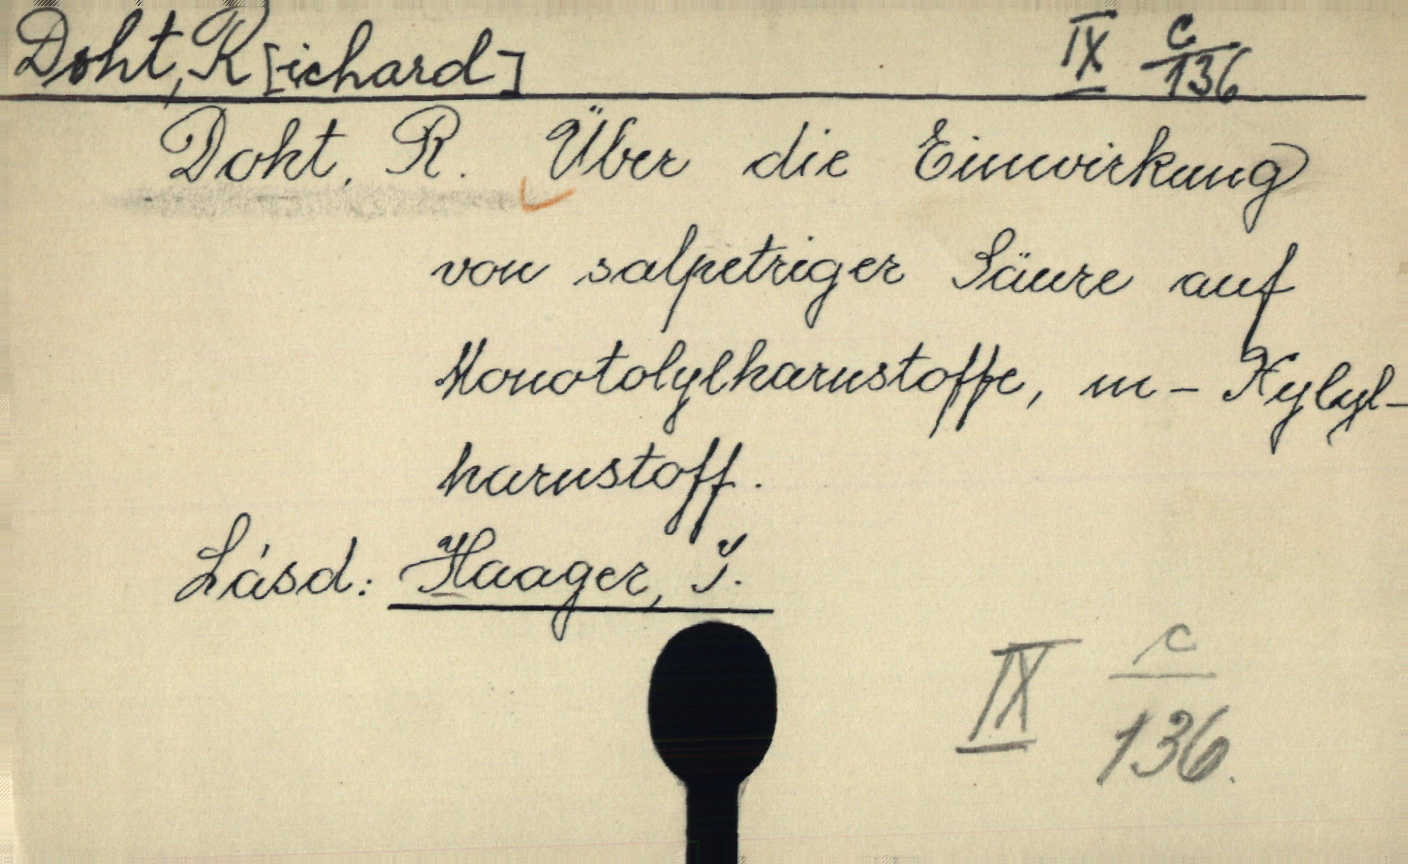 Doht, R[ichard] IX c/136
Doht, R. Über die Einwirkung
von salpetriger Säure auf
Monotolylharnstoffe, m-Xylyl-
harnstoff.
Lásd: Haager, J.
IX c/136.